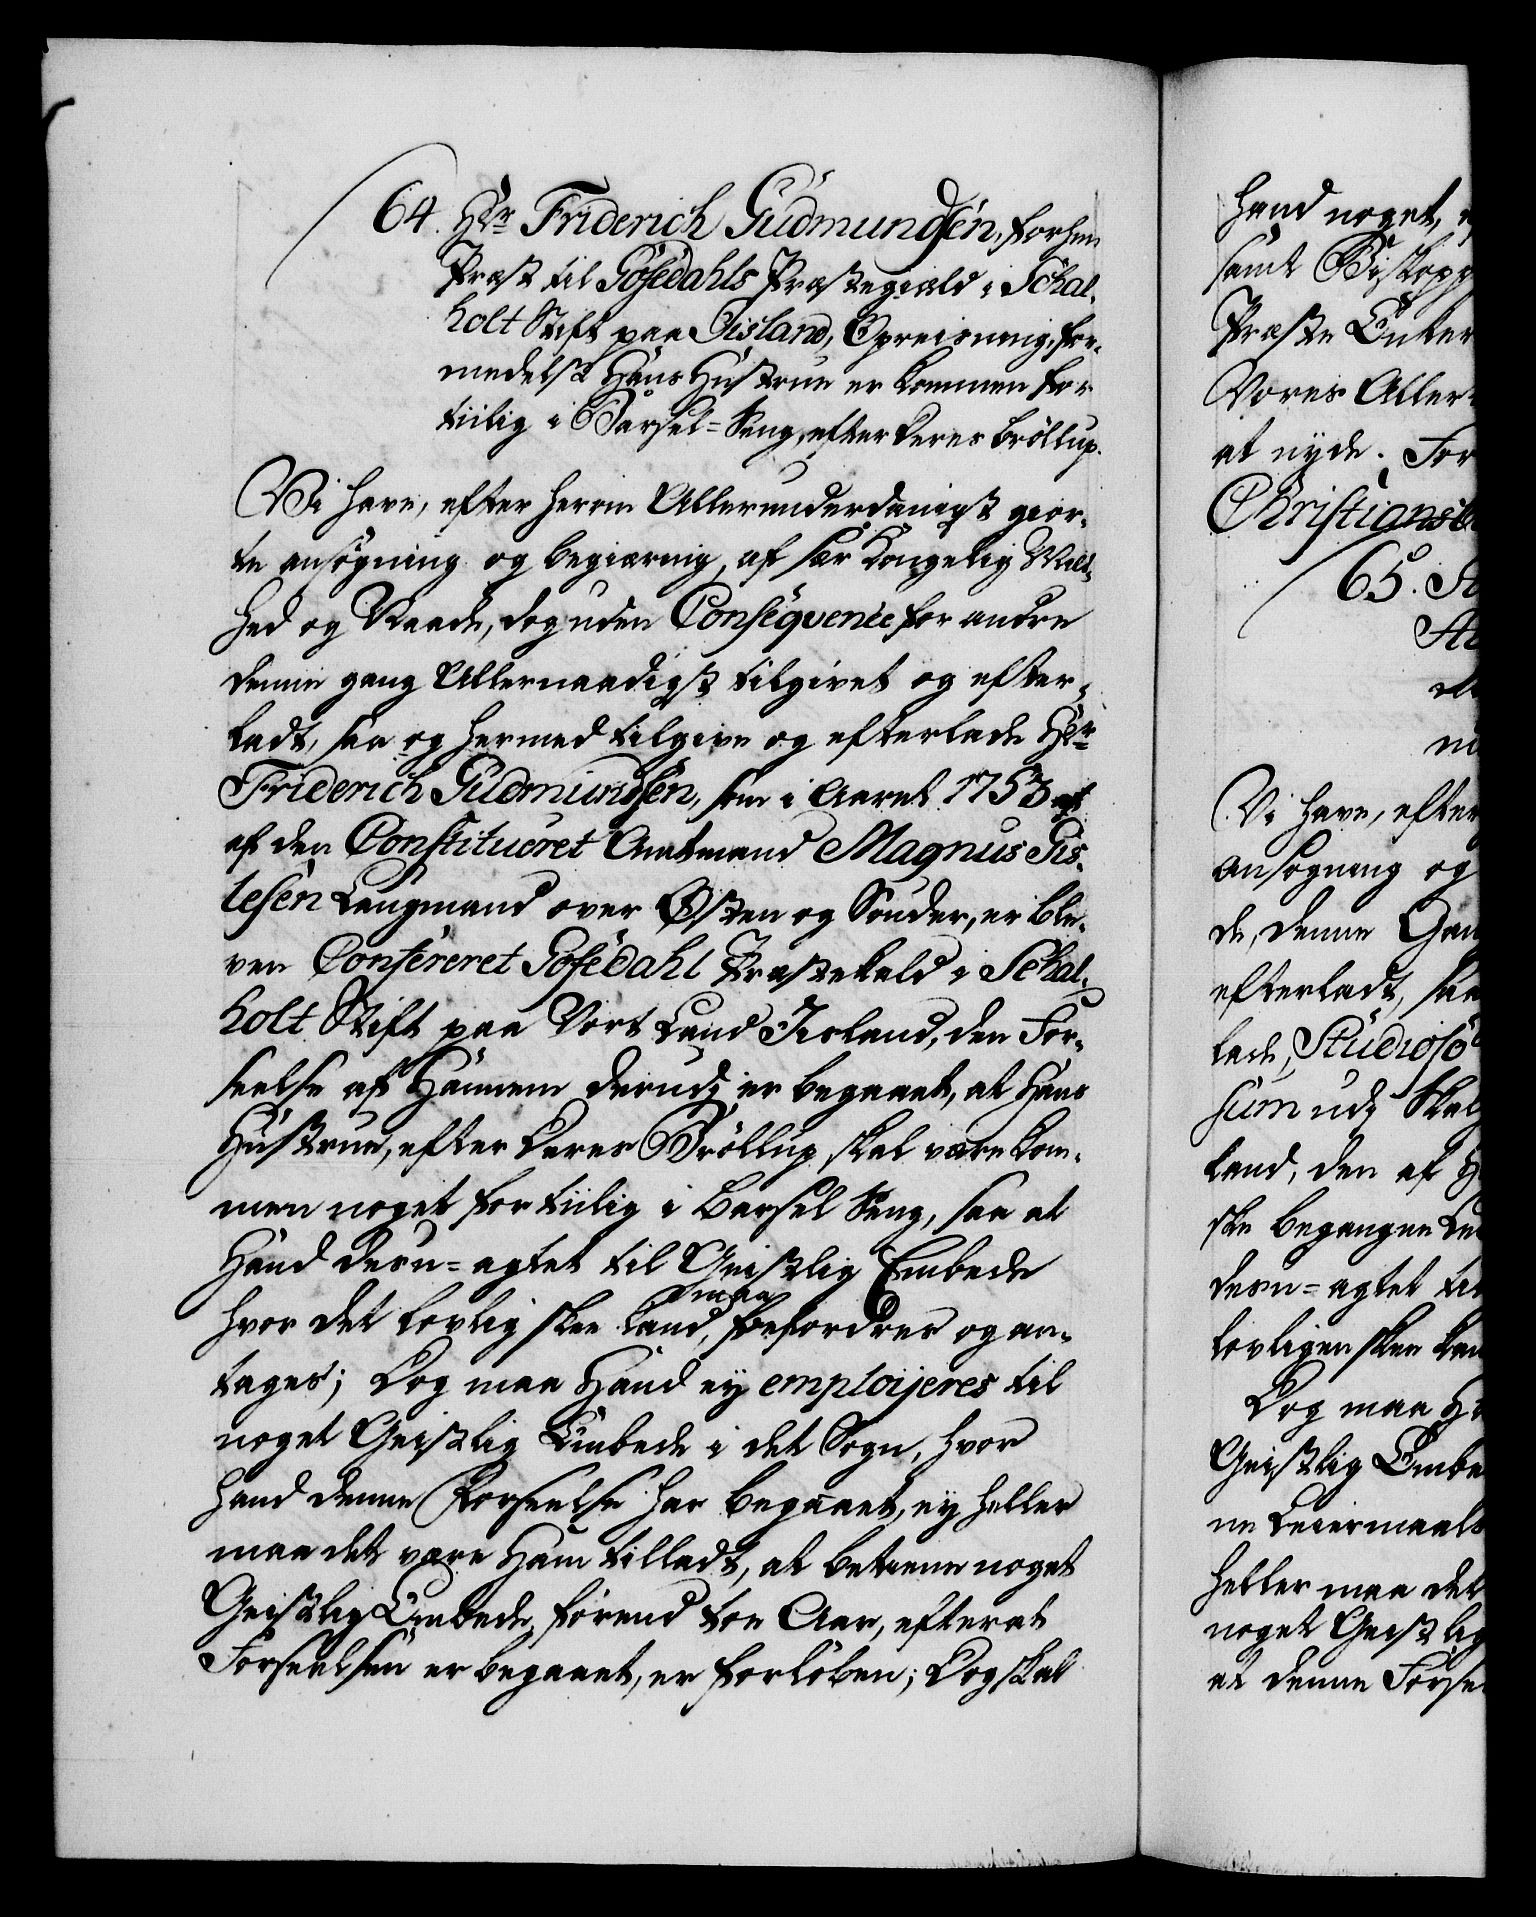 64. Hr. Friderich Gudmundsen, forhen
Præst til Gosedahls Præstegield i Schal-
holt Stift paa Iisland, Opreisning, for-
medelst Hans Hustrue er kommen for
tiilig i Barsel-Seng, efter deres Bröllup.
Vi have, efter herom Allerunderdanigst gior-
te ansøgning og begiæring, af sær Kongelig Mild-
hed og Naade, dog uden Conseqvence for andre
denne gang Allernaadigst tilgivet og efter-
ladt, saa og hermed tilgive og efterlade Hr.
Friderich Gudmundsen, som i Aaret 1753
af den Constitueret Amtmand Magnus Gis-
lesen Laugmand over Østen og Sønder, er ble-
ven Confereret Gosedahl Præstekald i Schal-
holt Stift paa Vort Land Iisland, den For-
seelse af Hannem derudj er begaaet, at Hans
Hustrue, efter deres Bröllup skal være kom-
men noget for tiilig i Barsel Seng, saa at
Hand desu-agtet til Geistlig Embede
hvor det lovlig skee kand, maa befordres og an-
tages; Dog maa Hand ey emploijeres til
noget Geistlig Embede i det Sogn, hvor
hand denne Forseelse har begaaet, ey heller
maa det være Ham tilladt, at betiene noget
Geistlig Embede, førend toe Aar, efter at
Forseelsen er begaaet, er forløben; Dog skal
hand noget,
samt Biskopp
Præste Enker
Vores Aller
at nyde. For
Christiansb
65.
Vi have, efter
ansøgning og
de, denne Gan
efterladt, saa
lade, Studioso
sum udj Skal
land, den af H
ske begangne Le
desu-agtet til
lovligen skee kan
Dog maa Ha
Geistlig Embe
ne Leiermaals
heller maa det
noget Geistlig
at denne Forse